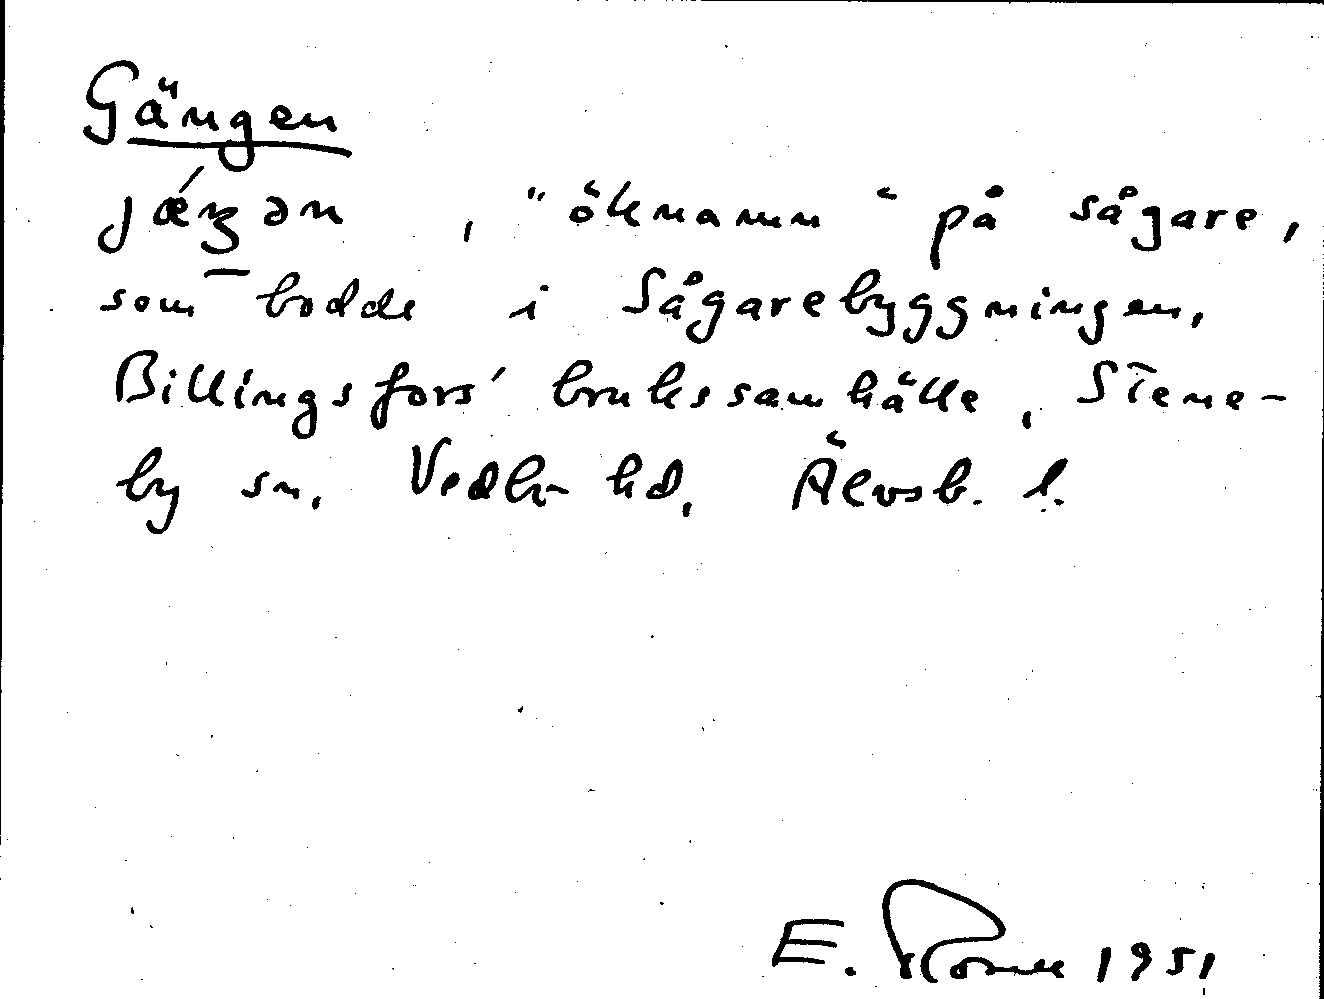 Gängen
jǽŋən, "öknamn" på sågare,
som bodde i Sågarebyggningen,
Billingsfors' brukssamhälle, Stene-
by sn, Vedbo hd, Älvsb. l.
E. 1951